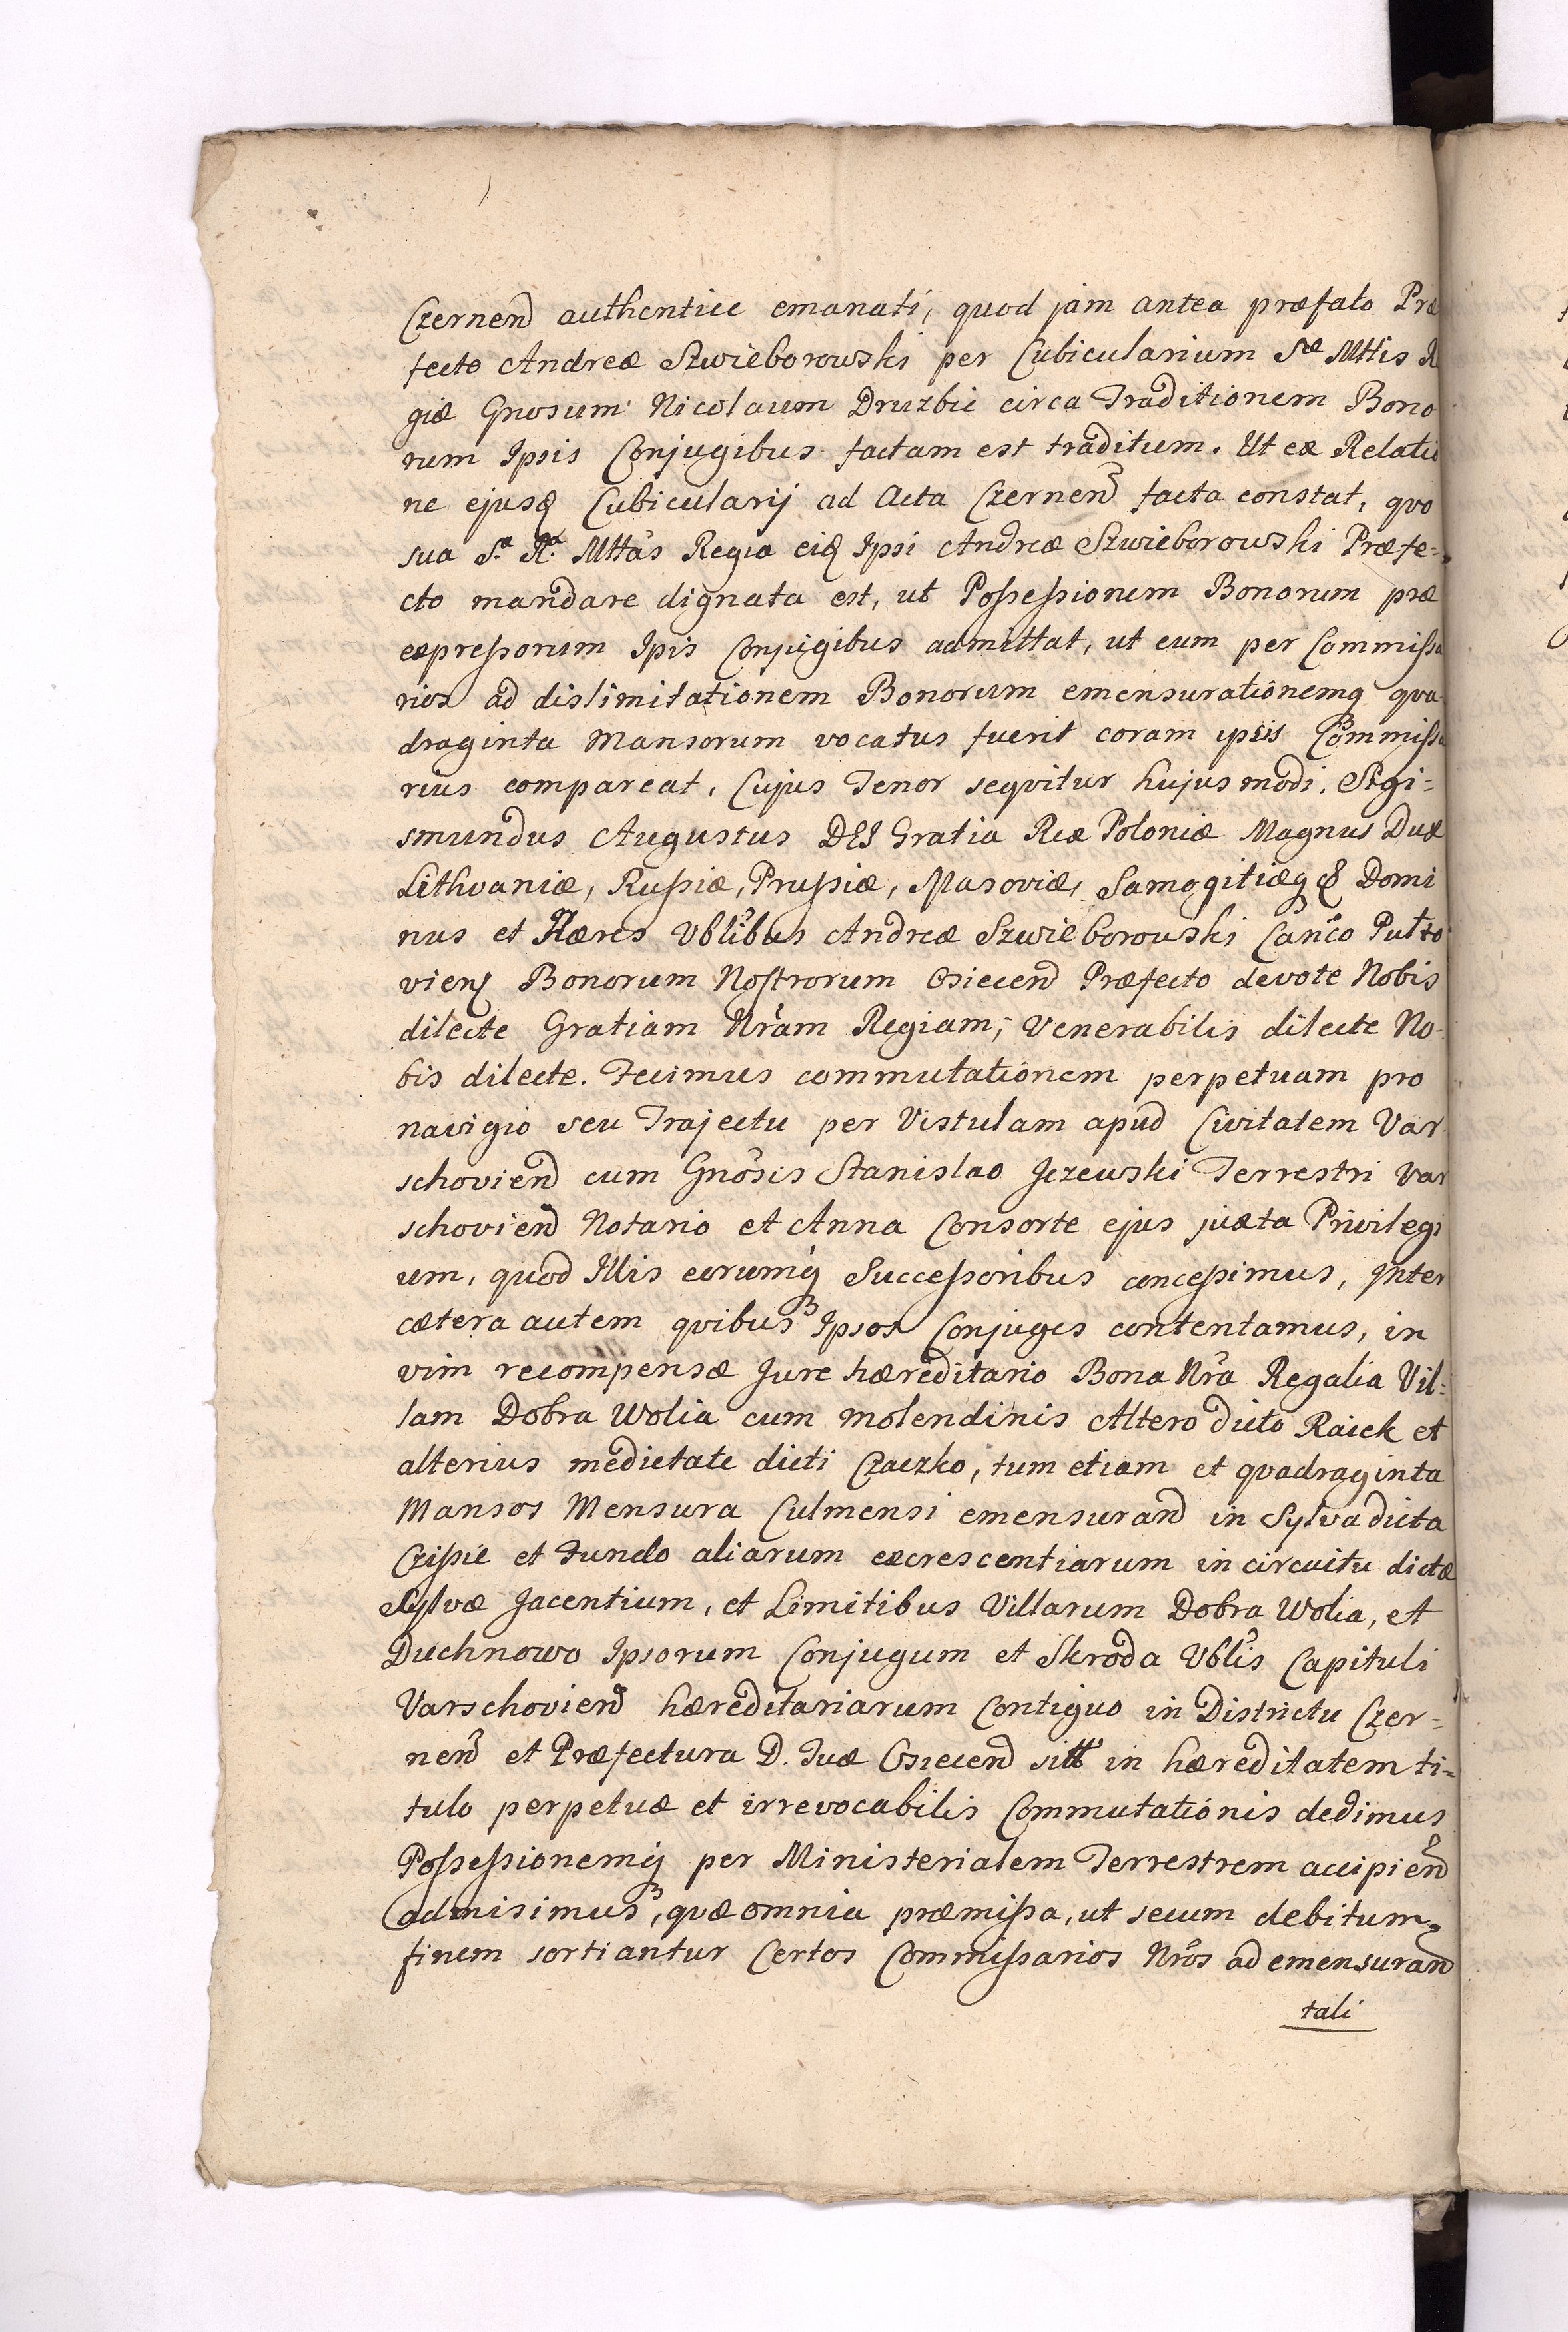 Czernen̄ authentice emanati, quod jam antea præfato Præ
fecto Andreæ Szwieborowski per Cubicularium Sæ Mttis R
giæ Gnosum Nicolaum Druzbic circa Traditionem Bono
rum Ipsis Conjugibus factam est traditum. Ut ex Relatio
ne ejusq̄ Cubicularij ad Acta Czernen̄ facta constat, quo
sua S.ª R.ª Mttas Regia eiq̄ Ipsi Andreæ Szwieborowski Præfe=
cto mandare dignata est, ut Possessionem Bonorum præ
expressorum Ipis Conjugibus admittat, ut cum per Commissa
rios ad dislimitationem Bonorum emensurationemq̄ qva
draginta Mansorum vocatus fuerit coram ipsis Commissa
rius compareat, Cujus Tenor seqvitur hujusmodi. Sigi=
smundus Augustus DEI Gratia Rex Poloniæ Magnus Dux
Lithvaniæ, Russiæ, Prussiæ, Masoviæ, Samogitiæq̄ & Domi
nus et Hæres Vblibus Andreæ Szwieborowski Canco Pulto
vien̄ Bonorum Nostrorum Osiecen̄ Præfecto devote Nobis
dilecte Gratiam Nram Regiam; Venerabilis dilecte No-
bis dilecte. Fecimus commutationem perpetuam pro
navigio seu Trajectu per Vistulam apud Civitatem Var
schovien̄ cum Gnosis Stanislao Jezewski Terrestri Var
schovien̄ Notario et Anna Consorte ejus juxta Privilegi
um, quod Illis eorumq̄ Successoribus concessimus, Inter
cætera autem qvibus Ipsos Conjuges contentamus, in
vim recompensæ Jure hæreditario Bona Nra Regalia Vil=
lam Dobra Wolia cum molendinis Altero dicto Raick et
alterius medietate dicti Czaczko, tum etiam et qvadraginta
Mansos Mensura Culmensi emensuran̄ in Sylva dicta
Czissie et Fundo aliarum excrescentiarum in circuitu dictæ
Sylvæ Jacentium, et Limitibus Villarum Dobra Wolia, et
Duchnowo Ipsorum Conjugum et Skroda Vblis Capituli
Varschovien̄ hæreditariarum Contiguo in Districtu Czer=
nen̄ et Præfectura D. Tuæ Osiecen̄ sitt in hæreditatem ti=
tulo perpetuæ et irrevocabilis Commutationis dedimus
Possessionemq̄ per Ministerialem Terrestrem accipien̄
admisimus, qvæ omnia præmissa, ut secum debitum
finem sortiantur Certos Commissarios Nros ad emensuran̄
tali